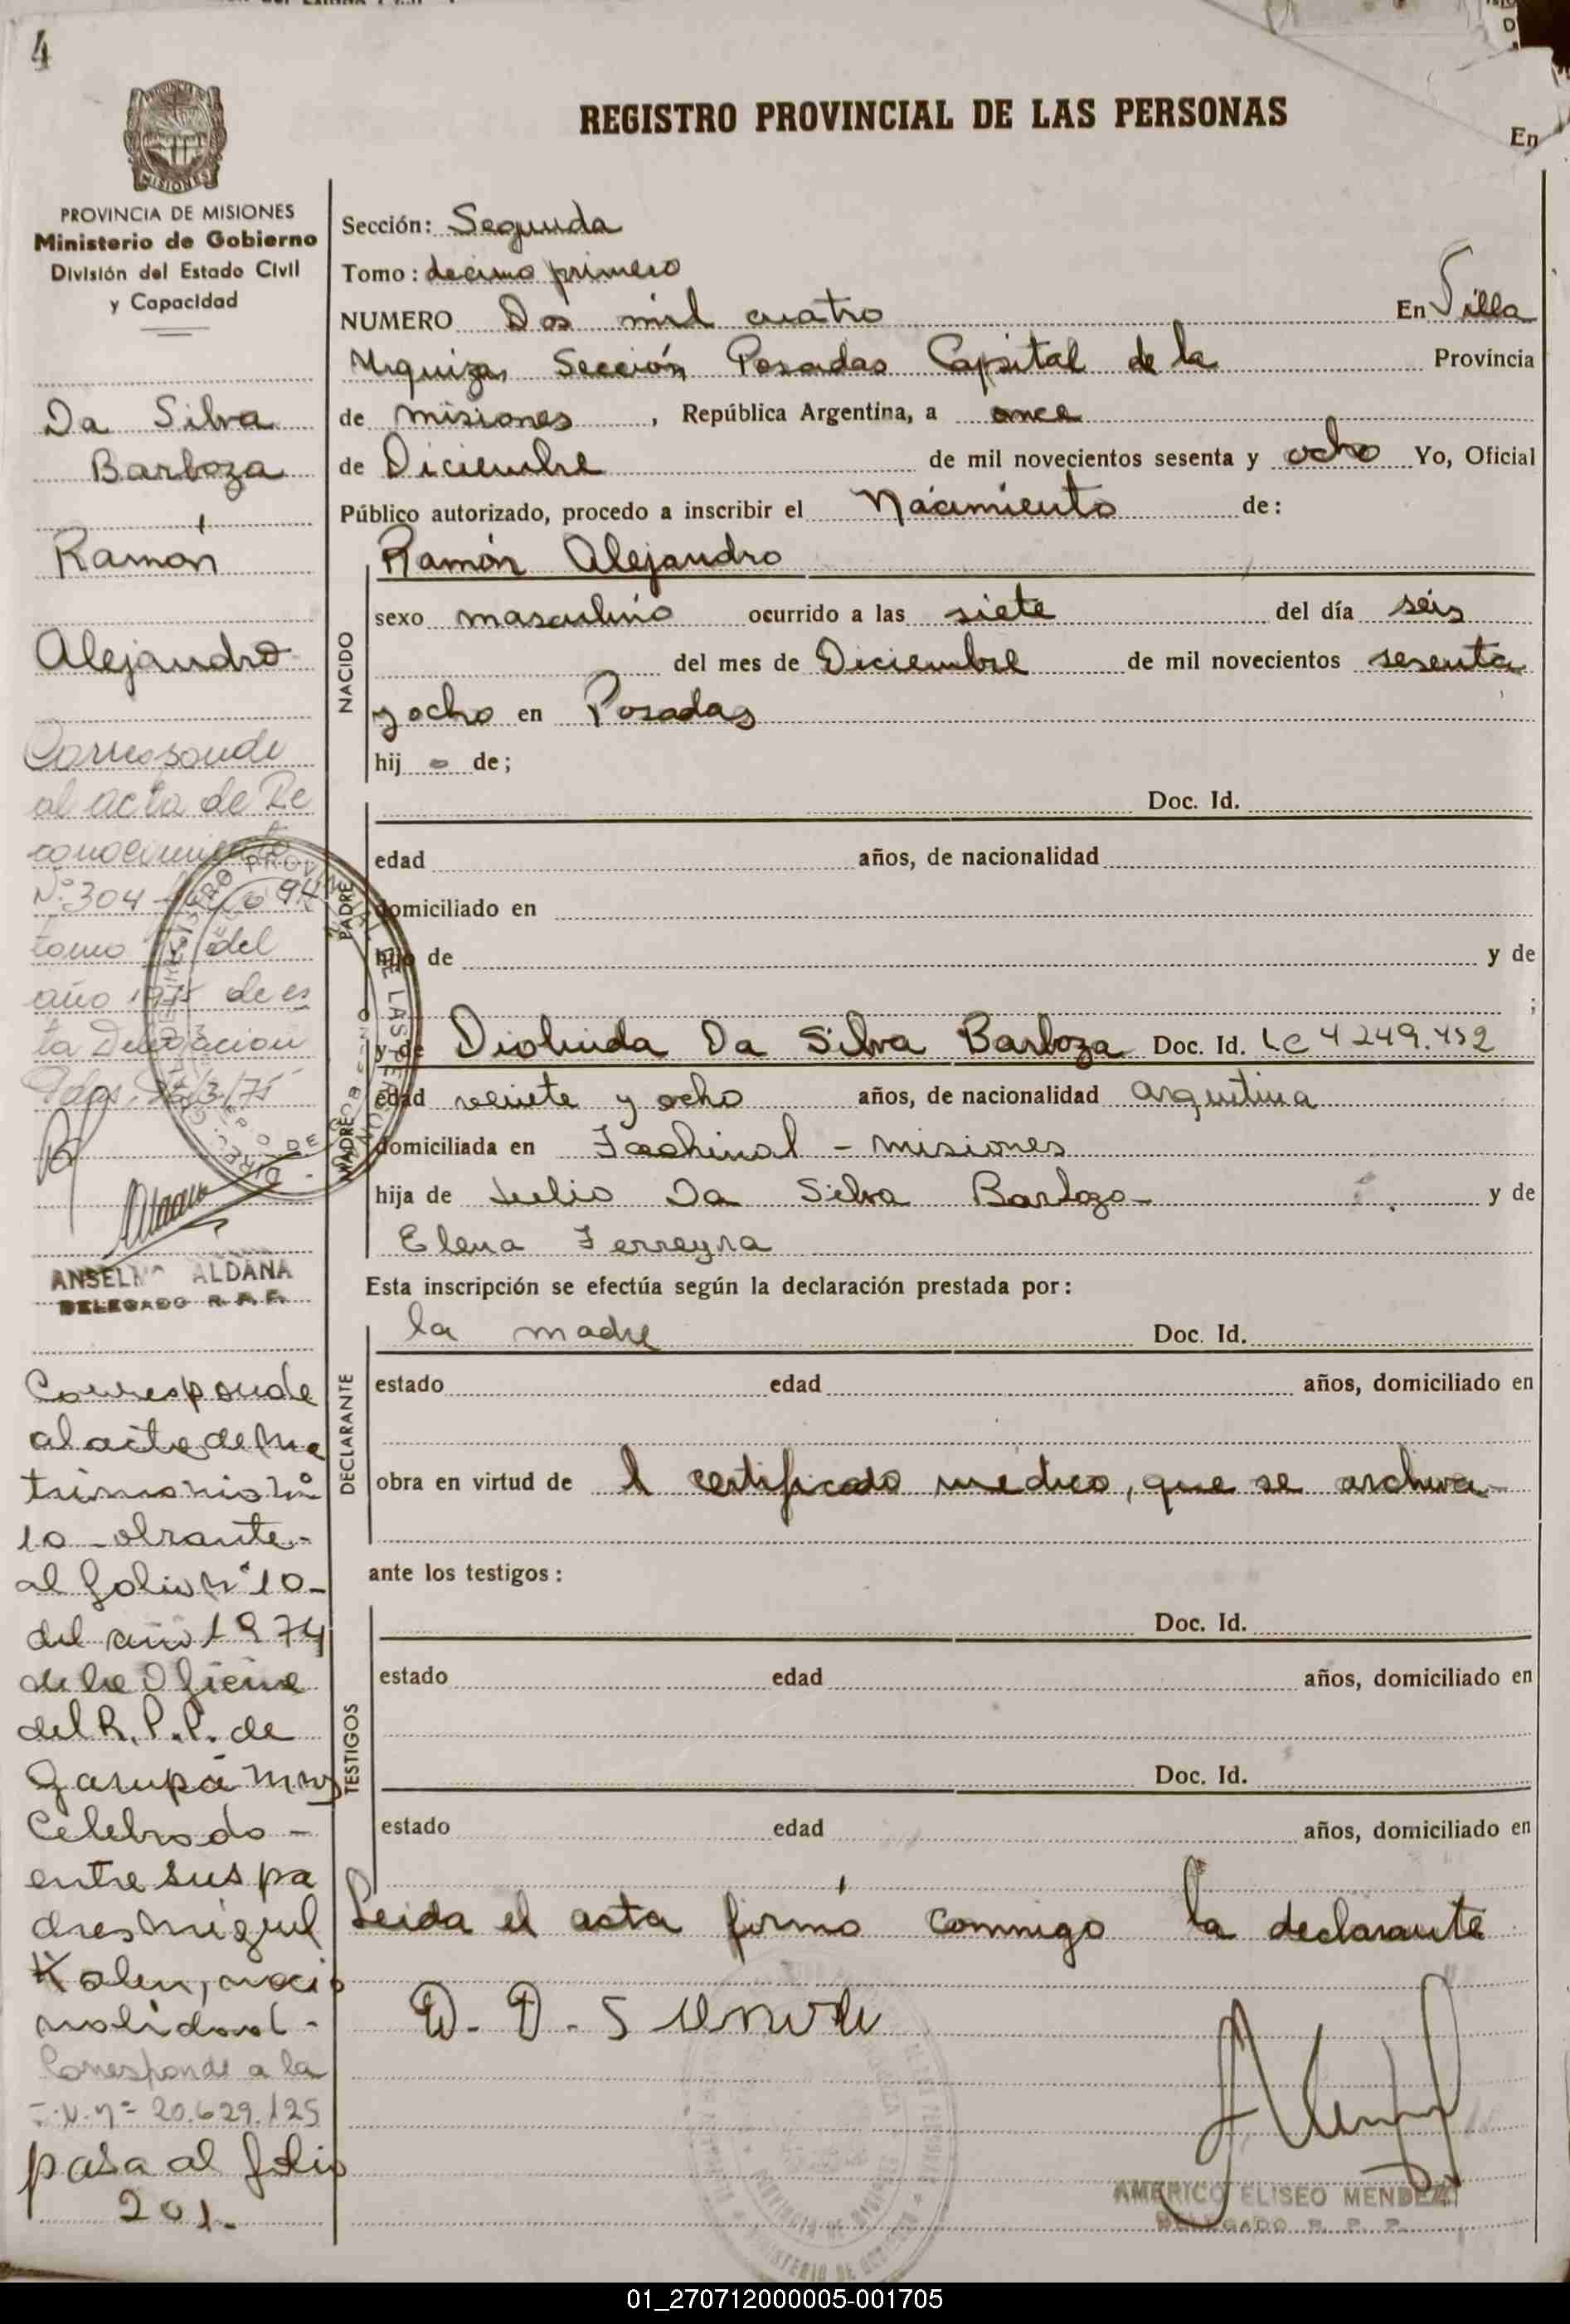 4
REGISTRO PROVINCIAL DE LAS PERSONAS
En
PROVINCIA DE MISIONES
Ministerio de Gobierno
División del Estado Civil
y Capacidad
Da Silva
Barboza
Ramón
Alejandro
Corresponde
al acta de Re
conocimiento
Nº 304 94
tomo del
año 1975 de es
ta Delegacion
Pdas, 26/3/75
ANSELMO ALDANA
DELEGADO R. P. P.
Corresponde
al acta de Ma
trimonio nº
10 - obrante -
al folio nº 10 -
del año 1974
de la Oficina
del R. P. P. de
Garupá Mns
Celebrado -
entre sus pa
dres Miguel
nacio
nalidad -
Corresponde a la
nº 20.629.125
pasa al folio
201.-
Sección: Segunda
Tomo: decimo primero
NUMERO Dos mil cuatro En Villa
Urquiza, Sección Posadas Capital de la Provincia
de misiones, República Argentina, a once
de Diciembre de mil novecientos sesenta y ocho Yo, Oficial
Público autorizado, procedo a inscribir el Nacimiento de:
NACIDO
Ramón Alejandro
sexo masculino ocurrido a las siete del día séis
del mes de Diciembre de mil novecientos sesenta
y ocho en Posadas
hij o de;
PADRE
Doc. Id.
edad años, de nacionalidad
domiciliado en
hijo de y de
;
MADRE
y de Diolinda Da Silva Barboza Doc. Id. LC 4249.452
edad veinte y ocho años, de nacionalidad argentina
domiciliada en Fachinal - misiones
hija de Julio Da Silva Barboza - y de
Elena Ferreyra
Esta inscripción se efectúa según la declaración prestada por:
DECLARANTE
la madre Doc. Id.
estado edad años, domiciliado en
obra en virtud de l certificado médico, que se archiva -
ante los testigos:
TESTIGOS
Doc. Id.
estado edad años, domiciliado en
Doc. Id.
estado edad años, domiciliado en
Leida el acta firmó conmigo la declarante
AMERICO ELISEO MENDEZ
DELEGADO R. P. P.
01_270712000005-001705